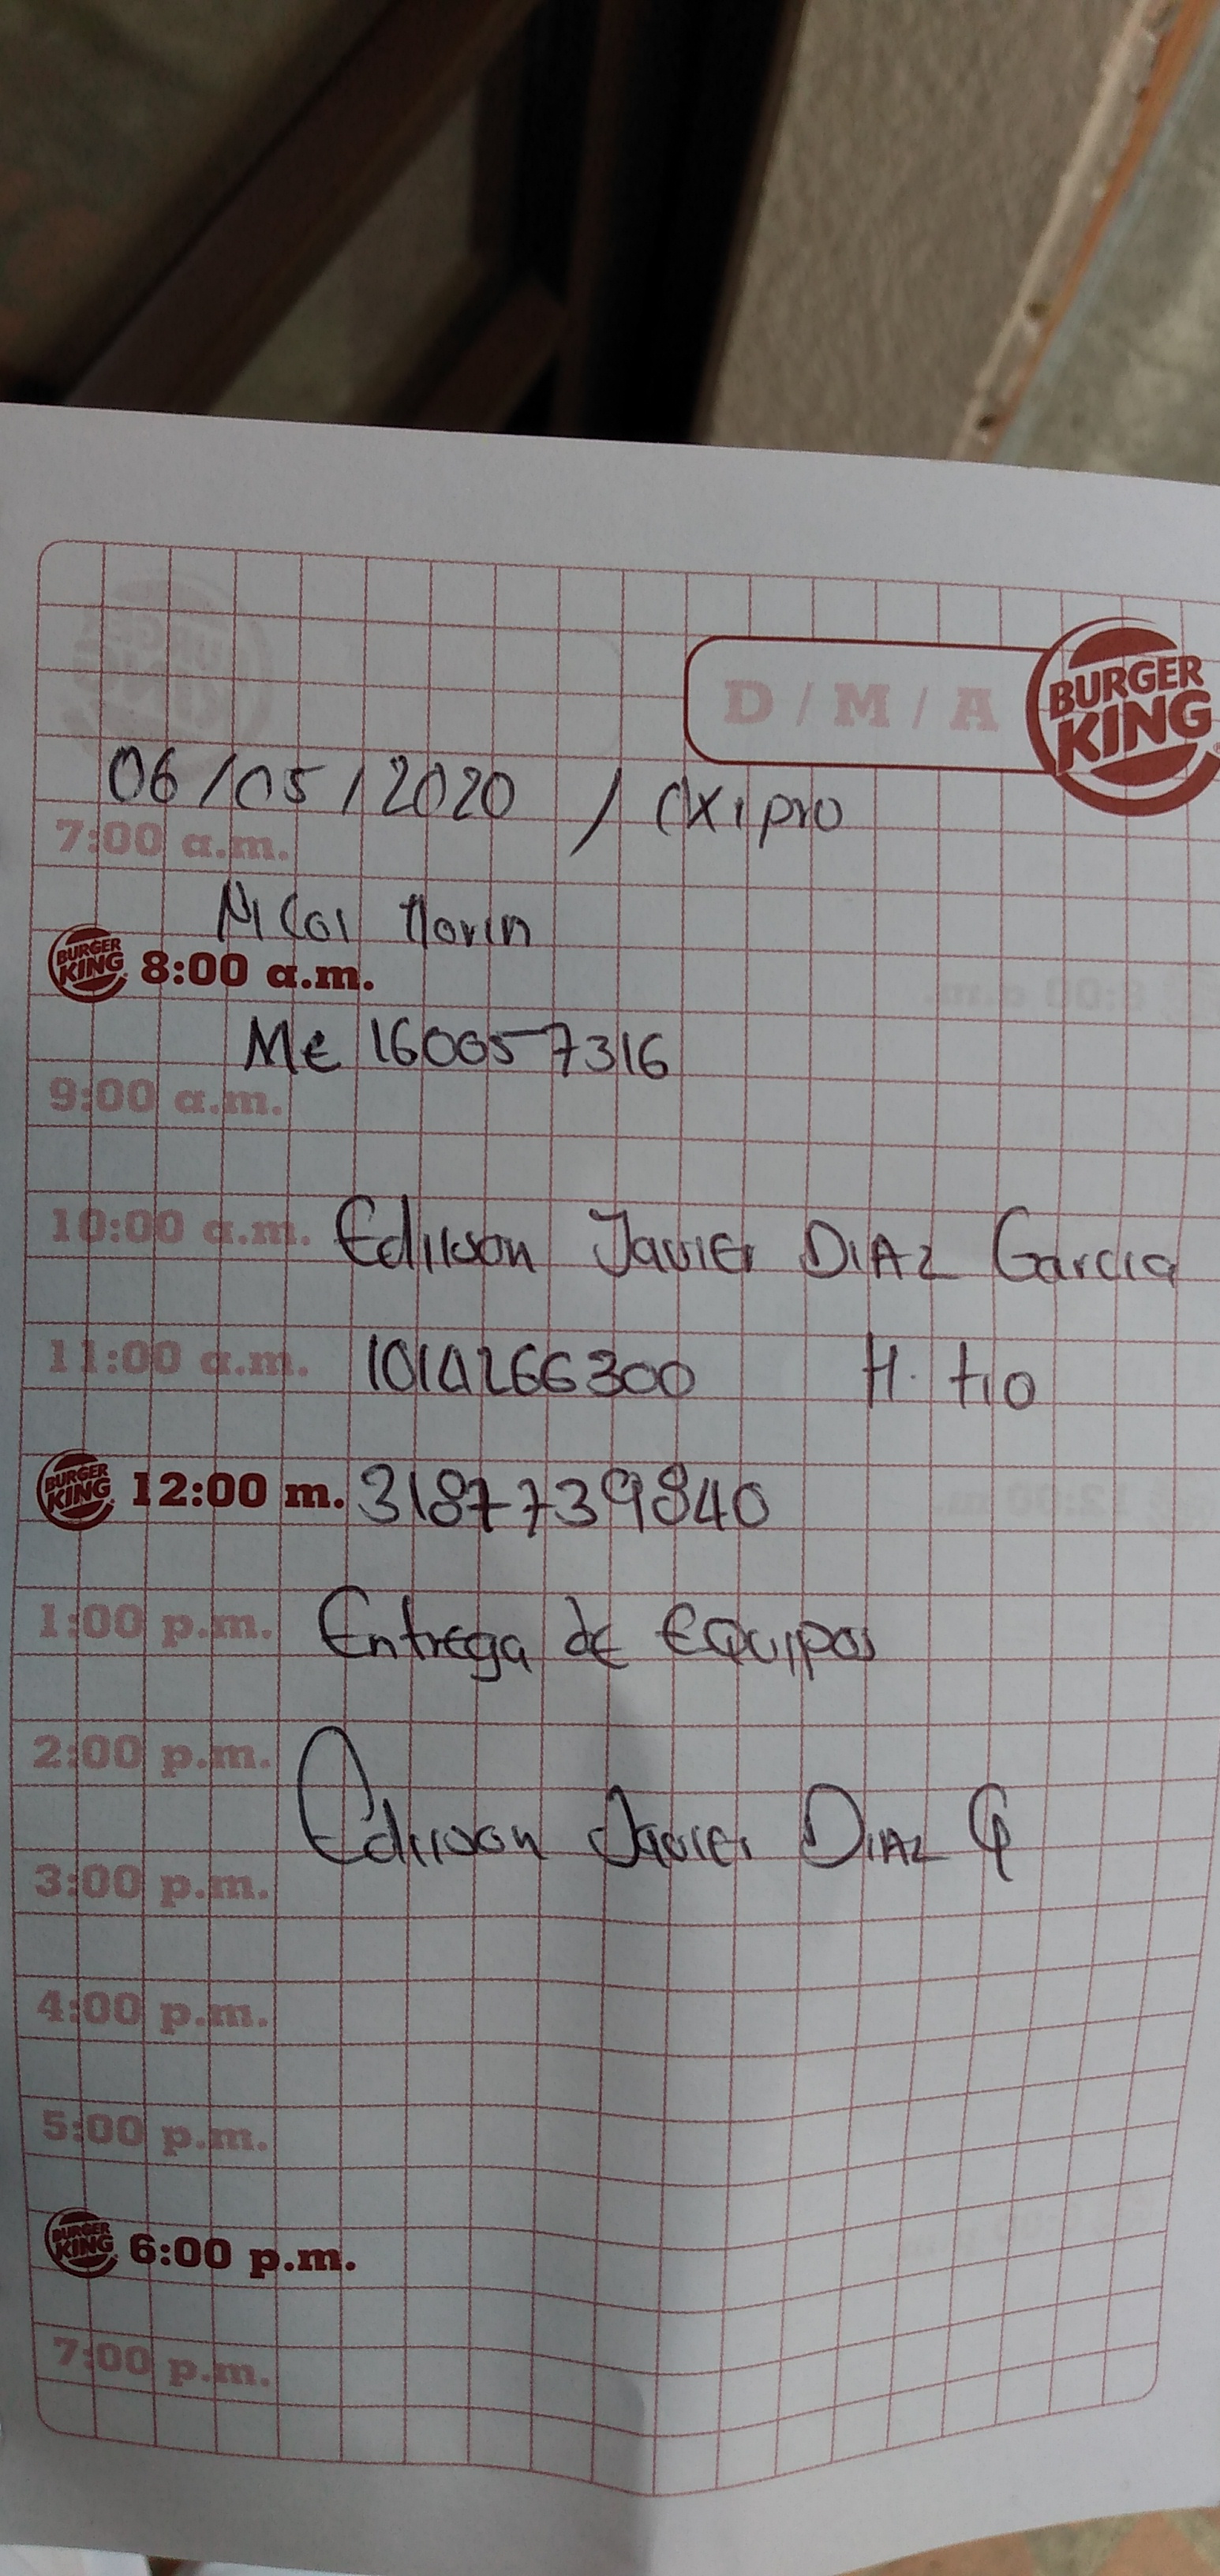 D / M / A
BURGER KING
06/05/2020 / Oxipro
7:00 a.m.
Nicol Marin
BURGER KING 8:00 a.m.
Me 160057316
9:00 a.m.
10:00 a.m. Edilson Javier DIAZ Garcia
11:00 a.m. 1014266300 H. tio
BURGER KING 12:00 m. 3187739840
1:00 p.m. Entrega de Equipos
2:00 p.m.
Edilson Javier DIAZ G
3:00 p.m.
4:00 p.m.
5:00 p.m.
BURGER KING 6:00 p.m.
7:00 p.m.